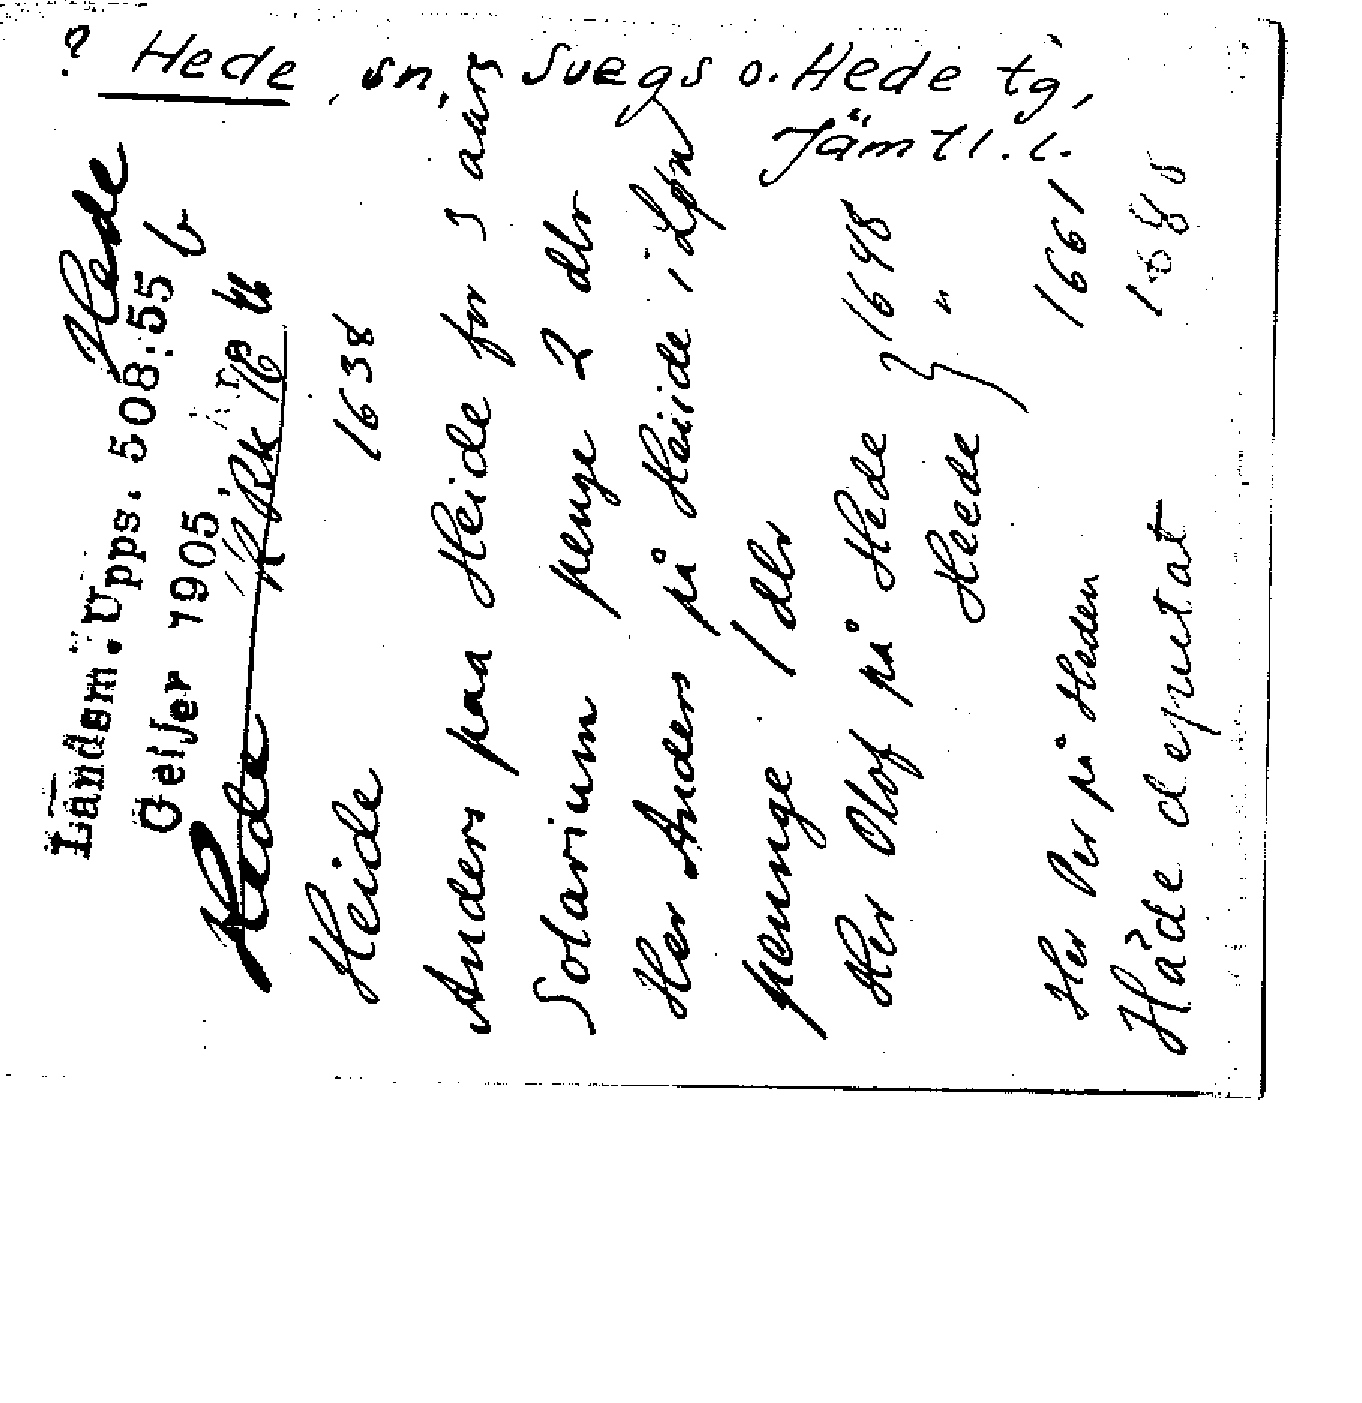 ? Hede, sn, Svegs o. Hede tg,
Jämtl. l.
Hede
Landsm. Upps. 508:55 b
Geijer 1905.
Hede
Heide 1638
Anders paa Heide for 3 aars
Solarium penge 2 dlr
Her Anders på Heiide i Lön
penge 1 dlr
Her Olof på Hede } 1648
Heede } "
Her Per på Heden 1661
Håde deputat